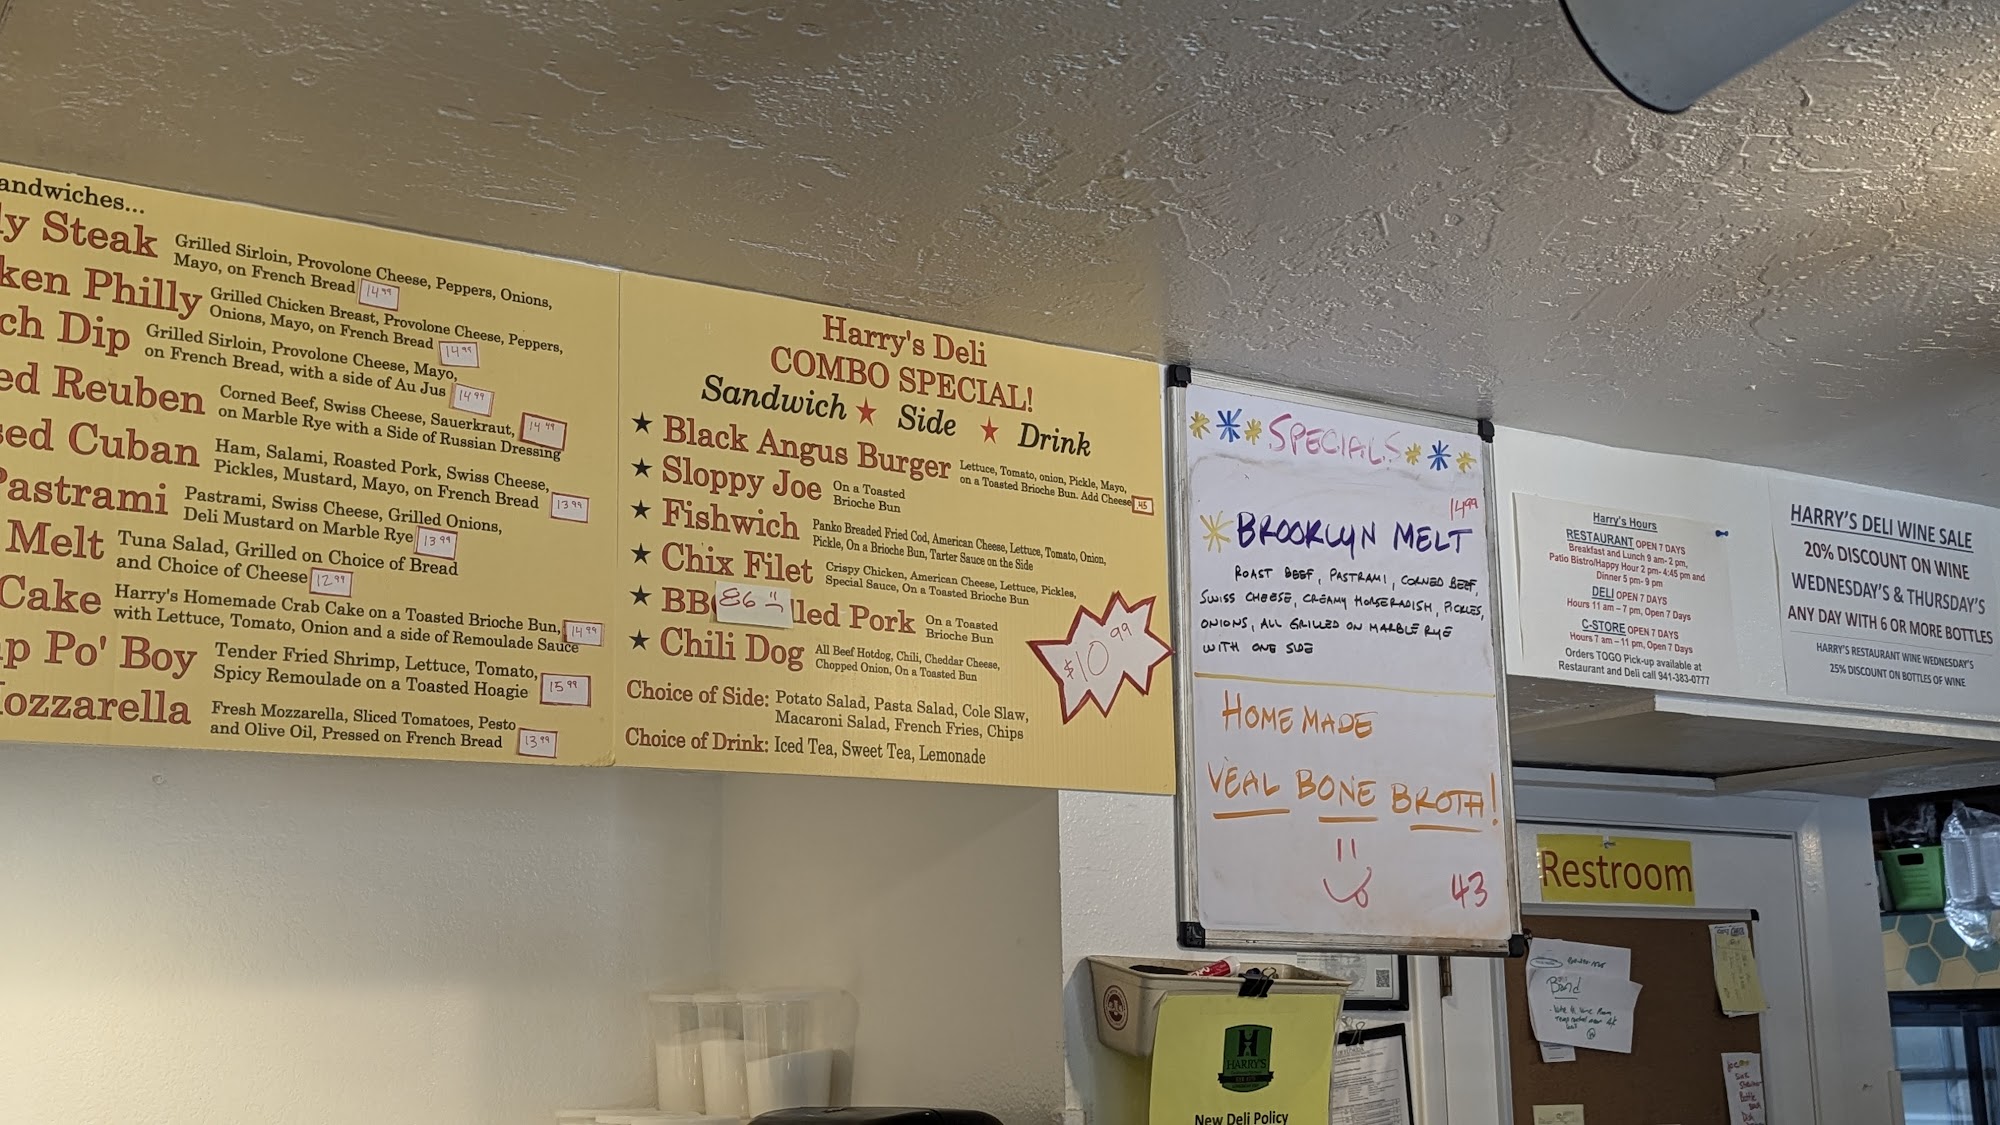 andwiches...
ly Steak
Grilled Sirloin, Provolone Cheese, Peppers, Onions,
Mayo, on French Bread 14.99
ken Philly
Grilled Chicken Breast, Provolone Cheese, Peppers,
Onions, Mayo, on French Bread 14.99
ch Dip
Grilled Sirloin, Provolone Cheese, Mayo,
on French Bread, with a side of Au Jus 14.99
ed Reuben
Corned Beef, Swiss Cheese, Sauerkraut, 14.99
on Marble Rye with a Side of Russian Dressing
sed Cuban
Ham, Salami, Roasted Pork, Swiss Cheese,
Pickles, Mustard, Mayo, on French Bread 13.99
Pastrami
Pastrami, Swiss Cheese, Grilled Onions,
Deli Mustard on Marble Rye 13.99
Melt
Tuna Salad, Grilled on Choice of Bread
and Choice of Cheese 12.99
Cake
Harry's Homemade Crab Cake on a Toasted Brioche Bun, 14.99
with Lettuce, Tomato, Onion and a side of Remoulade Sauce
p Po' Boy
Tender Fried Shrimp, Lettuce, Tomato,
Spicy Remoulade on a Toasted Hoagie 15.99
ozzarella
Fresh Mozzarella, Sliced Tomatoes, Pesto
and Olive Oil, Pressed on French Bread 13.99
Harry's Deli
COMBO SPECIAL!
Sandwich ★ Side ★ Drink
★ Black Angus Burger
Lettuce, Tomato, onion, Pickle, Mayo,
on a Toasted Brioche Bun. Add Cheese .45
★ Sloppy Joe
On a Toasted
Brioche Bun
★ Fishwich
Panko Breaded Fried Cod, American Cheese, Lettuce, Tomato, Onion,
Pickle, On a Brioche Bun, Tarter Sauce on the Side
★ Chix Filet
Crispy Chicken, American Cheese, Lettuce, Pickles,
Special Sauce, On a Toasted Brioche Bun
★ BB 86 lled Pork
On a Toasted
Brioche Bun
★ Chili Dog
All Beef Hotdog, Chili, Cheddar Cheese,
Chopped Onion, On a Toasted Bun
$10.99
Choice of Side: Potato Salad, Pasta Salad, Cole Slaw,
Macaroni Salad, French Fries, Chips
Choice of Drink: Iced Tea, Sweet Tea, Lemonade
SPECIALS
14.99
BROOKLYN MELT
ROAST BEEF, PASTRAMI, CORNED BEEF,
SWISS CHEESE, CREAMY HORSERADISH, PICKLES,
ONIONS, ALL GRILLED ON MARBLE RYE
WITH ONE SIDE
HOMEMADE
VEAL BONE BROTH!
43
Harry's Hours
RESTAURANT OPEN 7 DAYS
Breakfast and Lunch 9 am- 2 pm,
Patio Bistro/Happy Hour 2 pm- 4:45 pm and
Dinner 5 pm- 9 pm
DELI OPEN 7 DAYS
Hours 11 am – 7 pm, Open 7 Days
C-STORE OPEN 7 DAYS
Hours 7 am – 11 pm, Open 7 Days
Orders TOGO Pick-up available at
Restaurant and Deli call 941-383-0777
HARRY'S DELI WINE SALE
20% DISCOUNT ON WINE
WEDNESDAY'S & THURSDAY'S
ANY DAY WITH 6 OR MORE BOTTLES
HARRY'S RESTAURANT WINE WEDNESDAY'S
25% DISCOUNT ON BOTTLES OF WINE
Restroom
Band
HARRY'S
New Deli Policy